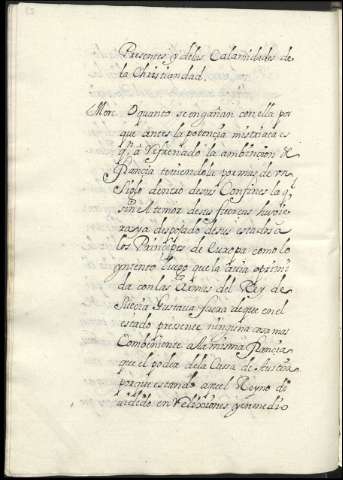 Presentes y delas Calamidades de
la Christiandad.
Mor. O quanto se engañan con ella por
que antes la potencia mistriaca es
q.e a Refrenado la ambiçion de
Françia teniendola por mas de un
siglo dentro desus Confines la q.l
sin el temor desus fuerças huvie
ra ya despojado desus estados a
los Prinçipes de Europa como lo
yntento luego que la tenia oprimi
da con las Armas del Rey de
Sueçia Gustavo, fuera deque en el
estado presente ninguna cosa mas
Combeniente a la misma Françia
que el poder dela Casa de Austria
porque estando antes el Reyno di
uidido en Religiones y en medio